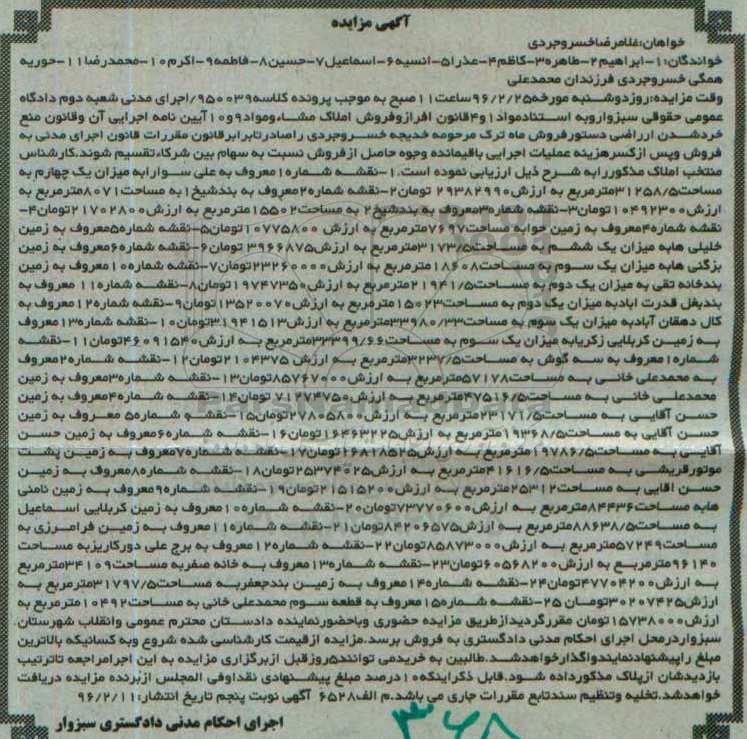 آگهی مزایده
خواهان:غلامرضاخسروجردی
خواندگان:۱-ابراهیم۲-طاهره۳-کاظم۴-عذرا۵-انسیه۶-اسماعیل۷-حسین۸-فاطمه۹-اکرم۱۰-محمدرضا۱۱-حوریه
همگی خسروجردی فرزندان محمدعلی
وقت مزایده:روزدوشنبه مورخه۹۶/۲/۲۵ساعت۱۱صبح به موجب پرونده کلاسه۹۵۰۰۳۹/اجرای مدنی شعبه دوم دادگاه
عمومی حقوقی سبزواروبه استنادمواد۱و۴قانون افرازوفروش املاک مشاءومواد۹و۱۰آیین نامه اجرایی آن وقانون منع
خردشدن ارراضی دستورفروش ماه ترک مرحومه خدیجه خسروجردی راصادرتابرابرقانون مقررات قانون اجرای مدنی به
فروش وپس ازکسرهزینه عملیات اجرایی باقیمانده وجوه حاصل ازفروش نسبت به سهام بین شرکاءتقسیم شوند.کارشناس
منتخب املاک مذکوررابه شرح ذیل ارزیابی نموده است.۱-نقشه شماره۱معروف به علی سوارابه میزان یک چهارم به
مساحت۳۱۲۵۸/۵مترمربع به ارزش۲۹۳۸۲۹۹۰ تومان۲-نقشه شماره۲معروف به بندشیخ۱به مساحت۸۰۷۱مترمربع به
ارزش۱۰۴۹۲۳۰۰تومان۳-نقشه شماره۳معروف به بندشیخ۲ به مساحت۱۵۵۰۲مترمربع به ارزش۲۱۷۰۲۸۰۰تومان۴-
نقشه شماره۴معروف به زمین خوابه مساحت۷۶۹۷مترمربع به ارزش ۱۰۷۷۵۸۰۰تومان۵-نقشه شماره۵معروف به زمین
خلیلی هابه میزان یک ششم به مساحت۳۱۷۳/۵مترمربع به ارزش۳۹۶۶۸۷۵تومان۶-نقشه شماره۶معروف به زمین
بزگنی هابه میزان یک سوم به مساحت۱۸۶۰۸مترمربع به ارزش۲۳۲۶۰۰۰۰تومان۷-نقشه شماره۱۰معروف به زمین
بندخانه تقی به میزان یک دوم به مساحت۲۱۹۴۱/۵مترمربع به ارزش۱۹۷۴۷۳۵۰تومان۸-نقشه شماره۱۱ معروف به
بندبغل قدرت ابادبه میزان یک دوم به مساحت۱۵۰۲۳مترمربع به ارزش۱۳۵۲۰۰۷۰تومان۹-نقشه شماره۱۲معروف به
کال دهقان آبادبه میزان یک سوم به مساحت۳۳۹۸۰/۳۳مترمربع به ارزش۳۱۹۴۱۵۱۳تومان۱۰-نقشه شماره۱۳معروف
به زمین کربلایی زکریابه میزان یک سوم به مساحت۳۳۳۹۹/۶۶مترمربع به ارزش۴۶۰۹۱۵۴۰تومان۱۱-نقشه
شماره۱معروف به سه گوش به مساحت۳۲۳۷/۵مترمربع به ارزش۲۱۰۴۳۷۵ تومان۱۲-نقشه شماره۲معروف
به محمدعلی خانی به مساحت۵۷۱۷۸مترمربع به ارزش۸۵۷۶۷۰۰۰تومان۱۳-نقشه شماره۳معروف به زمین
محمدعلی خانی به مساحت۴۷۵۱۶/۵مترمربع به ارزش۷۱۲۷۴۷۵۰ تومان۱۴-نقشه شماره۴معروف به زمین
حسن آقایی به مساحت۲۳۱۷۱/۵مترمربع به ارزش۲۷۸۰۵۸۰۰تومان۱۵-نقشه شماره۵ معروف به زمین
حسن آقایی به مساحت۱۹۳۶۸/۵مترمربع به ارزش۱۶۴۶۳۲۲۵تومان۱۶-نقشه شماره۶معروف به زمین حسن
آقایی به مساحت۱۹۷۸۶/۵مترمربع به ارزش۱۶۸۱۸۵۲۵تومان۱۷-نقشه شماره۷معروف به زمین پشت
موتورقریشی به مساحت۴۱۶۱۶/۵مترمربع به ارزش۲۵۳۷۴۰۲۵تومان۱۸-نقشه شماره۸معروف به زمین
حسن اقایی به مساحت۲۵۳۱۲مترمربع به ارزش۲۱۵۱۵۲۰۰تومان۱۹-نقشه شماره۹معروف به زمین نامنی
هابه مساحت۸۴۴۳۶مترمربع به ارزش۷۳۷۷۰۶۰۰تومان۲۰-نقشه شماره۱۰معروف به زمین کربلایی اسماعیل
به مساحت۸۸۶۳۸/۵مترمربع به ارزش۸۴۲۰۶۵۷۵تومان۲۱-نقشه شماره۱۱معروف به زمین فرامرزی به
مساحت۵۷۲۴۹مترمربع به ارزش۸۵۸۷۳۰۰۰تومان۲۲-نقشه شماره۱۲معروف به برج علی دورکاریزبه مساحت
۹۶۱۴۰مترمربع به ارزش۶۰۵۶۸۲۰۰تومان۲۳-نقشه شماره۱۳معروف به خانه صفربه مساحت۳۴۱۰۹مترمربع
به ارزش۴۷۷۰۴۲۰۰تومان۲۴-نقشه شماره۱۴معروف به زمین بندجعفربه مساحت۳۱۷۹۷/۵مترمربع به
ارزش۳۰۲۰۷۴۲۵تومان ۲۵-نقشه شماره۱۵معروف به قطعه سوم محمدعلی خانی به مساحت۱۰۴۹۲مترمربع به
ارزش۱۵۷۳۸۰۰۰تومان مقررگردیدازطریق مزایده حضوری وباحضورنماینده دادستان محترم عمومی وانقلاب شهرستان
سبزواردرمحل اجرای احکام مدنی دادگستری به فروش برسد.مزایده ازقیمت کارشناسی شده شروع وبه کسانیکه بالاترین
مبلغ راپیشنهادنمایندواگذارخواهدشد.طالبین به خریدمی توانند۵روزقبل ازبرگزاری مزایده به این اجرامراجعه تاترتیب
بازدیدشان ازپلاک مذکورداده شود.قابل ذکراینکه۱۰درصد مبلغ پیشنهادی نقداوفی المجلس ازبرنده مزایده دریافت
خواهدشد.تخلیه وتنظیم سندتابع مقررات جاری می باشد.م الف۶۵۲۸ آگهی نوبت پنجم تاریخ انتشار:۹۶/۲/۱۱
اجرای احکام مدنی دادگستری سبزوار
۳۶۸